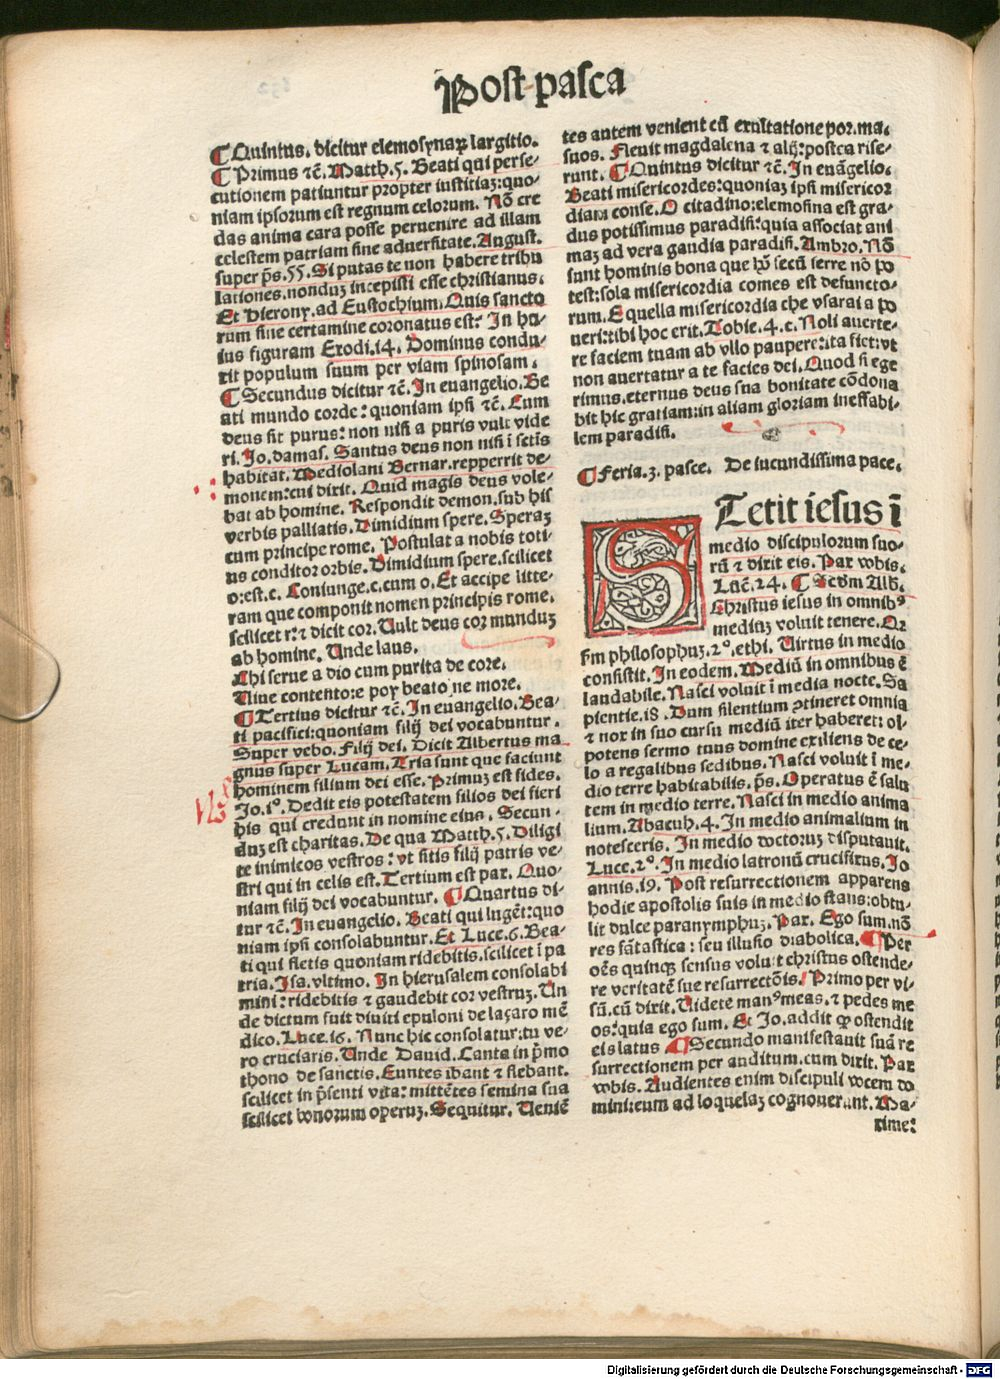 Post pasca
¶ Quintus. dicitur elemosynaꝝ largitio.
¶ Primus ⁊c̃. Matth. 5. Beati qui perse-
cutionem patiuntur propter iustitiaꝫ: quo-
niam ipsorum est regnum celorum. Nõ cre
das anima cara posse peruenire ad illam
celestem patriam sine aduersitate. August.
super p̃s. 55. Si putas te non habere tribu
lationes. nonduꝫ incepisti esse christianus.
Et Hieronꝝ. ad Eustochium. Quis sancto
rum sine certamine coronatus est? In hu-
ius figuram Exodi. 14. Dominus condu-
xit populum suum per viam spinosam.
¶ Secundus dicitur ⁊c̃. In euangelio. Be
ati mundo corde: quoniam ipsi ⁊c̃. Cum
deus sit purus: non nisi a puris vult vide
ri. Jo. damas. Santus deus non nisi ĩ sctĩs
habitat. Mediolani Bernar. repperrit de-
monem: cui dixit. Quid magis deus vole-
bat ab homine. Respondit demon. sub his
verbis palliatis. Dimidium spere. Speraꝫ
cum principe rome. Postulat a nobis toti-
us conditor orbis. Dimidium spere. scilicet
o: est. c. Coniunge. c. cum o. Et accipe litte-
ram que componit nomen principis rome.
scilicet r: ⁊ dicit cor. Uult deus cor munduꝫ
ab homine. Unde laus.
Chi serue a dio cum purita de core.
Uiue contento: e poꝝ beato ne more.
¶ Tertius dicitur ⁊c̃. In euangelio. Bea-
ti pacifici: quoniam filij dei vocabuntur.
Super vebo. Filij dei. Dicit Albertus ma
gnus super Lucam. Tria sunt que faciunt
hominem filium dei esse. Primuꝫ est fides.
Jo. 1º. Dedit eis potestatem filios dei fieri
his qui credunt in nomine eius. Secun-
duꝫ est charitas. De qua Matth. 5. Diligi
te inimicos vestros: vt sitis filij patris ve-
stri qui in celis est. Tertium est pax. Quo-
niam filij dei vocabuntur. ¶ Quartus di-
tur ⁊c̃. In euangelio. Beati qui lugẽt: quo
niam ipsi consolabuntur. Et Luce. 6. Bea-
ti qui fletis quoniam ridebitis. scilicet ĩ pa
tria. Isa. vltimo. In hierusalem consolabi
mini: ridebitis ⁊ gaudebit cor vestruꝫ. Un
de dictum fuit diuiti epuloni de laçaro mẽ
dico. Luce. 16. Nunc hic consolatur: tu ve-
ro cruciaris. Unde Dauid. Canta in p̃mo
thono de sanctis. Euntes ibant ⁊ flebant.
scilicet in p̃senti vita: mittẽtes semina sua
scilicet bonorum operuꝫ. Sequitur. Ueniẽ
tes autem venient cũ exultatione por. ma.
suos. Fleuit magdalena ⁊ alij: postea rise-
runt. ¶ Quintus dicitur ⁊c̃. In euãgelio.
Beati misericordes: quoniaꝫ ipsi misericor
diam conse. O citadino: elemosina est gra-
dus potissimus paradisi: quia associat ani
maꝫ ad vera gaudia paradisi. Ambro. Nõ
sunt hominis bona que hõ secũ ferre nõ po
test: sola misericordia comes est defuncto-
rum. E quella misericordia che vsarai a po
ueri: tibi hoc erit. Tobie. 4. c. Noli auerte-
re faciem tuam ab vllo paupere: ita fiet: vt
non auertatur a te facies dei. Quod si ege
rimus. eternus deus sua bonitate cõdona
bit hic gratiam: in aliam gloriam ineffabi-
lem paradisi.
¶ Feria. 3. pasce. De iucundissima pace.
STetit iesus ĩ
medio discipulorum suo-
rũ ⁊ dixit eis. Pax vobis.
Luc̃. 24. ¶ Scdm Alb.
Christus iesus in omnibꝰ
mediuꝫ voluit tenere. Qr
s̃m philosophuꝫ. 2º. ethi. Uirtus in medio
consistit. In eodem. Mediũ in omnibus ẽ
laudabile. Nasci voluit ĩ media nocte. Sa
pientie. 18. Dum silentium ꝯtineret omnia
⁊ nox in suo cursu mediũ iter haberet: ol-
potens sermo tuus domine exiliens de ce-
lo a regalibus sedibus. Nasci voluit ĩ me-
dio terre habitabilis. p̃s. Operatus ẽ salu
tem in medio terre. Nasci in medio anima
lium. Abacuh. 4. In medio animalium in
notesceris. In medio doctoruꝫ disputauit.
Luce. 2º. In medio latronũ crucifixus. Jo
annis. 19. Post resurrectionem apparens
hodie apostolis suis in medio stans: obtu-
lit dulce paranymphuꝫ. Pax. Ego sum. nõ
res fãtastica: seu illusio diabolica. ¶ Per
oẽs quinqꝫ sensus voluit christus ostende-
re veritatẽ sue resurrectõis. Primo per vi-
sũ. cũ dixit. Uidete manꝰ meas. ⁊ pedes me
os: quia ego sum. Et Jo. addit ꝙ ostendit
eis latus ¶ Secundo manifestauit suã re
surrectionem per auditum. cum dixit. Pax
vobis. Audientes enim discipuli vocem do
mini: eum ad loquelaꝫ cognouerunt. Ma-
xime:
Digitalisierung gefördert durch die Deutsche Forschungsgemeinschaft - DFG